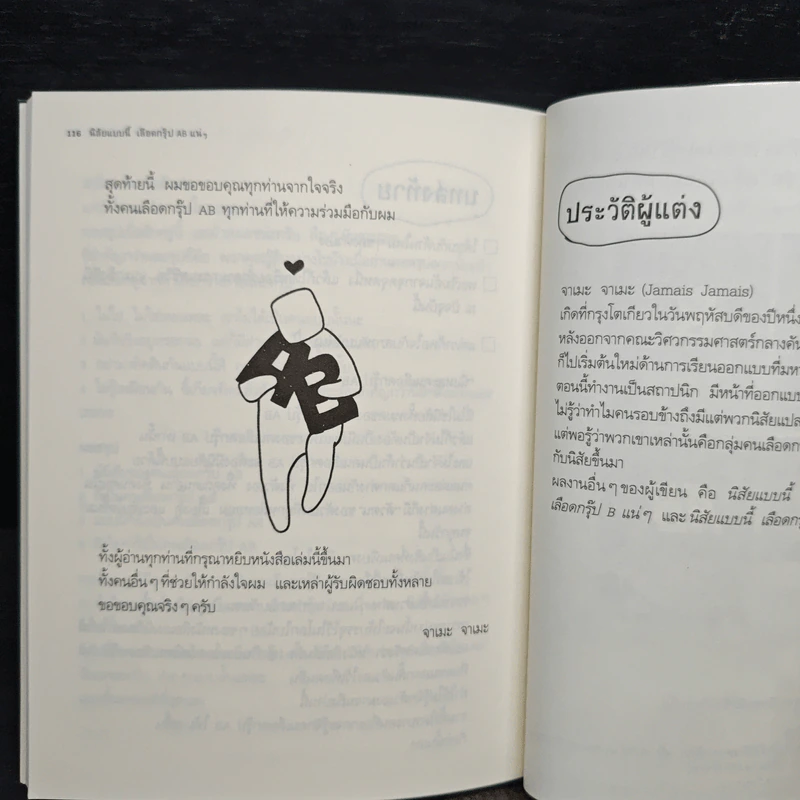 116 นิสัยแบบนี้ เลือดกรุ๊ป AB แน่ๆ
สุดท้ายนี้ ผมขอขอบคุณทุกท่านจากใจจริง
ทั้งคนเลือดกรุ๊ป AB ทุกท่านที่ให้ความร่วมมือกับผม
ทั้งผู้อ่านทุกท่านที่กรุณาหยิบหนังสือเล่มนี้ขึ้นมา
ทั้งคนอื่นๆ ที่ช่วยให้กำลังใจผม และเหล่าผู้รับผิดชอบทั้งหลาย
ขอขอบคุณจริงๆ ครับ
จาเมะ จาเมะ
ประวัติผู้แต่ง
จาเมะ จาเมะ (Jamais Jamais)
เกิดที่กรุงโตเกียวในวันพฤหัสบดีของปีหนึ่ง
หลังออกจากคณะวิศวกรรมศาสตร์กลางคัน
ก็ไปเริ่มต้นใหม่ด้านการเรียนออกแบบที่มหา
ตอนนี้ทำงานเป็นสถาปนิก มีหน้าที่ออกแบบ
ไม่รู้ว่าทำไมคนรอบข้างถึงมีแต่พวกนิสัยแปล
แต่พอรู้ว่าพวกเขาเหล่านั้นคือกลุ่มคนเลือดก
กับนิสัยขึ้นมา
ผลงานอื่นๆ ของผู้เขียน คือ นิสัยแบบนี้
เลือดกรุ๊ป B แน่ๆ และ นิสัยแบบนี้ เลือดกรุ